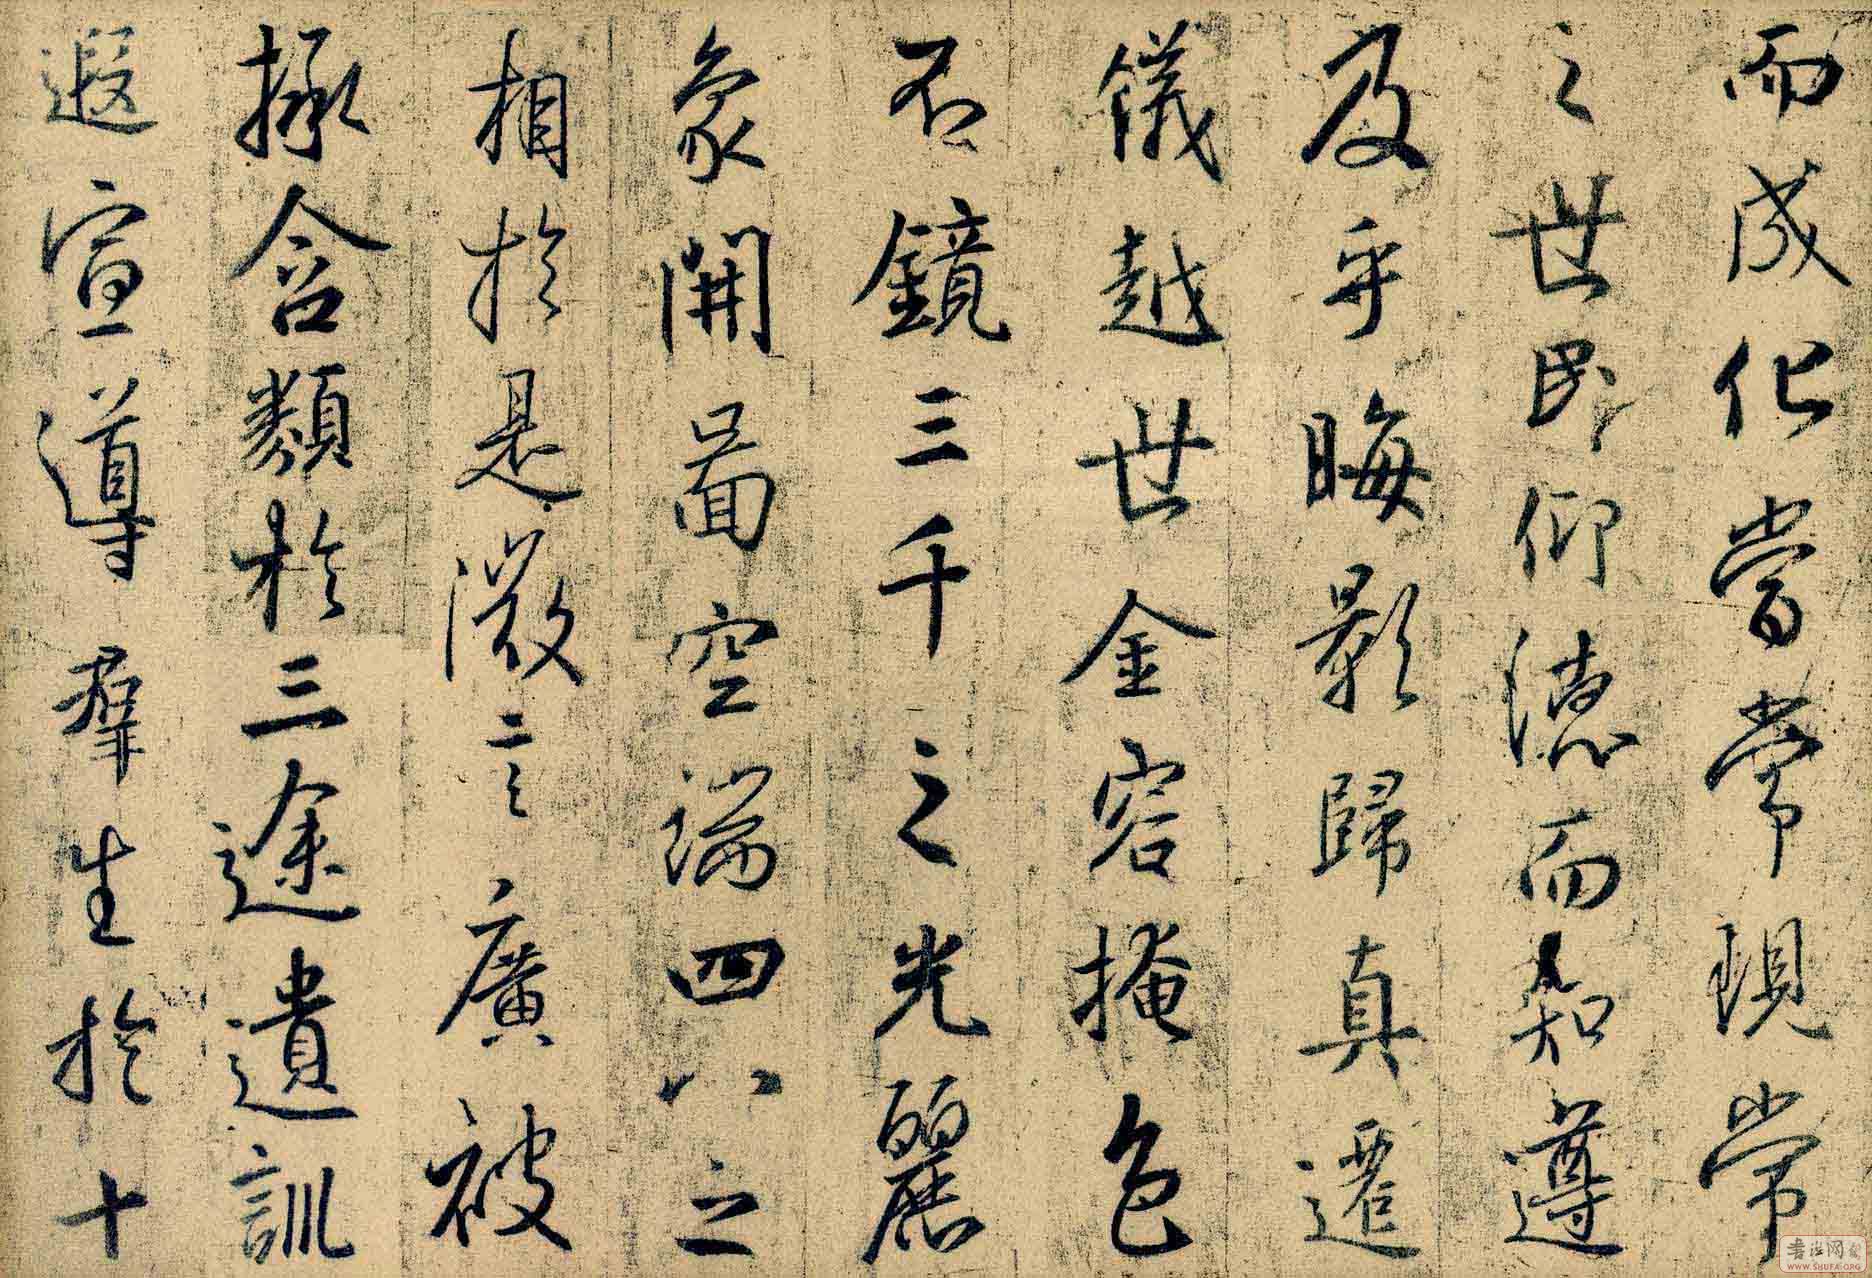 而成化當常現常
之世民仰德而知遵
及乎晦影歸真遷
儀越世金容掩色
不鏡三千之光麗
象開啚空端四八之
相於是微言廣被
拯含類於三途遺訓
遐宣導羣生於十
书法网
WWW.SHUFA.ORG